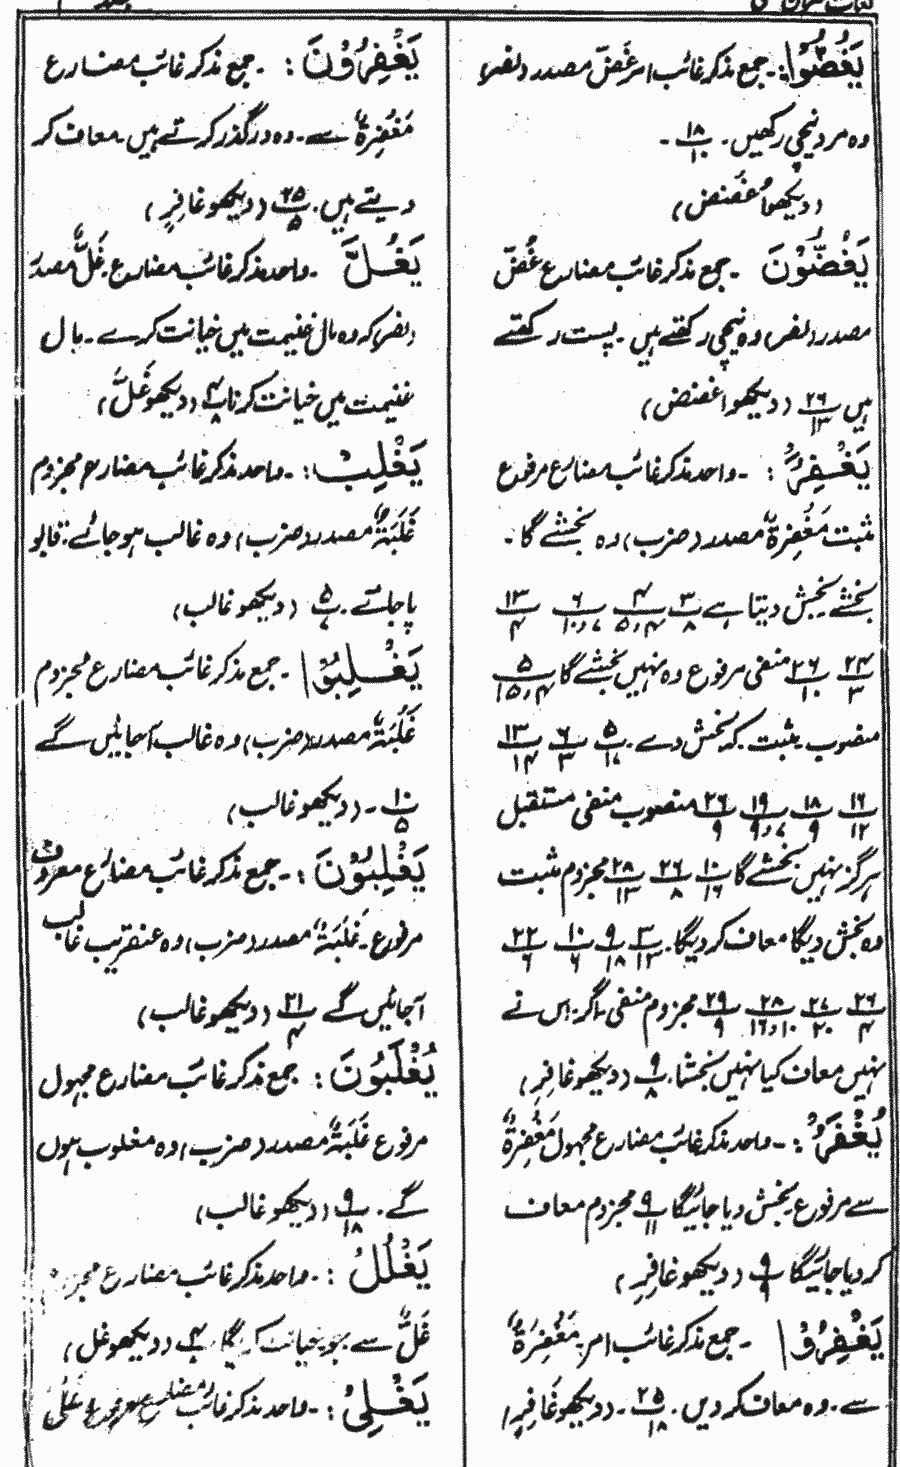 يَغُضُّوْا:- جمع مذکر غائب امر غَضٌّ مصدر (نصر)
وہ مرد نیچی رکھیں۔ ۱۸/۱۰ -
(دیکھو اغضض)
يَغُضُّوْنَ - جمع مذکر غائب مضارع غَضٌّ
مصدر (نصر) وہ نیچی رکھتے ہیں۔ پست رکھتے
ہیں ۲۶/۱۳ (دیکھو اغضض)
يَغْفِرُ: - واحد مذکر غائب مضارع مرفوع
مثبت مَغْفِرَةٌ مصدر (ضرب) وہ بخشے گا۔
بخشے بخش دیتا ہے ۳/۸ ۴/۵،۴ ۶/۱۰،۷ ۱۳/۴
۲۴/۳ ۲۶/۱۰ منفی مرفوع وہ نہیں بخشے گا ۵/۱۵،۴
منصوب مثبت۔ کہ بخش دے۔ ۵/۱۷ ۶/۳ ۱۳/۱۴
۱۶/۱۲ ۱۸/۹ ۱۹/۹،۷ ۲۶/۹ منصوب منفی مستقبل
ہرگز نہیں بخشے گا ۱۰/۱۶ ۲۶/۸ ۲۸/۱۳ مجزوم مثبت
وہ بخش دیگا معاف کر دیگا۔ ۳/۱۲ ۹/۱۸ ۱۰/۶ ۲۲/۶
۲۶/۴ ۲۷/۲۰ ۲۸/۱۶،۱۰ ۲۹/۹ مجزوم منفی۔ اگر اس نے
نہیں معاف کیا نہیں بخشا۔ ۹/۸ (دیکھو غافِرِ)
يُغْفَرُ: - واحد مذکر غائب مضارع مجہول مَغْفِرَةٌ
سے مرفوع بخش دیا جائیگا ۹/۱۱ مجزوم معاف
کر دیا جائیگا ۹/۹ (دیکھو غافِرِ)
يَغْفِرُوْا - جمع مذکر غائب امر۔ مَغْفِرَةٌ
سے۔ وہ معاف کر دیں۔ ۲۵/۱۸ - (دیکھو غَافِرِ)
يَغْفِرُوْنَ: - جمع مذکر غائب مضارع
مَغْفِرَةٌ سے۔ وہ درگذر کرتے ہیں۔ معاف کر
دیتے ہیں۔ ۲۵/۵ (دیکھو غافِرِ)
يَغُلَّ - واحد مذکر غائب مضارع۔ غَلٌّ مصدر
(نصر) کہ وہ مال غنیمت میں خیانت کرے۔ مال
غنیمت میں خیانت کرنا ۴/۸ (دیکھو غَلَّ)
يَغْلِبْ: - واحد مذکر غائب مضارع مجزوم
غَلَبَةٌ مصدر (ضرب) وہ غالب ہو جائے۔ قابو
پا جائے۔ ۵/۷ (دیکھو غالب)
يَغْلِبُوْا - جمع مذکر غائب مضارع مجزوم
غَلَبَةٌ مصدر (ضرب) وہ غالب آجائیں گے
۱۰/۵ - (دیکھو غالب)
يَغْلِبُوْنَ :- جمع مذکر غائب مضارع معروف
مرفوع۔ غَلَبَةٌ مصدر (ضرب) وہ عنقریب غالب
آجائیں گے ۲۱/۴ (دیکھو غالب)
يُغْلَبُوْنَ: جمع مذکر غائب مضارع مجہول
مرفوع غَلَبَةٌ مصدر (ضرب) وہ مغلوب ہوں
گے۔ ۹/۱۸ (دیکھو غالب)
يَغْلُلْ: - واحد مذکر غائب مضارع مجزوم
غَلٌّ سے جو خیانت کریگا ۴/۸ (دیکھو غل)
يَغْلِيْ: - واحد مذکر غائب مضارع معروف